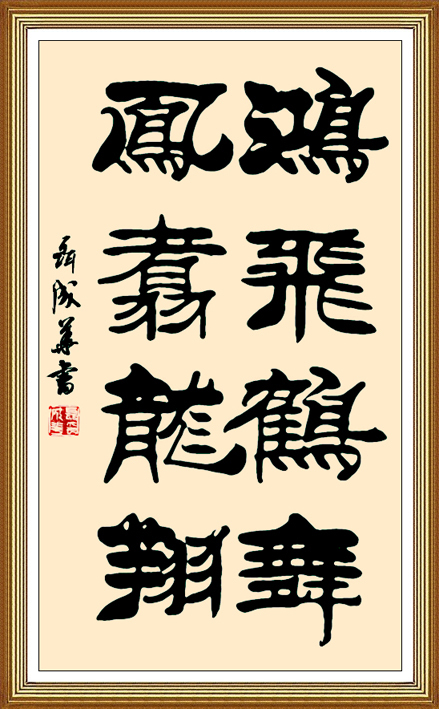 鴻飛鶴舞
鳳翥龍翔
聶成華書